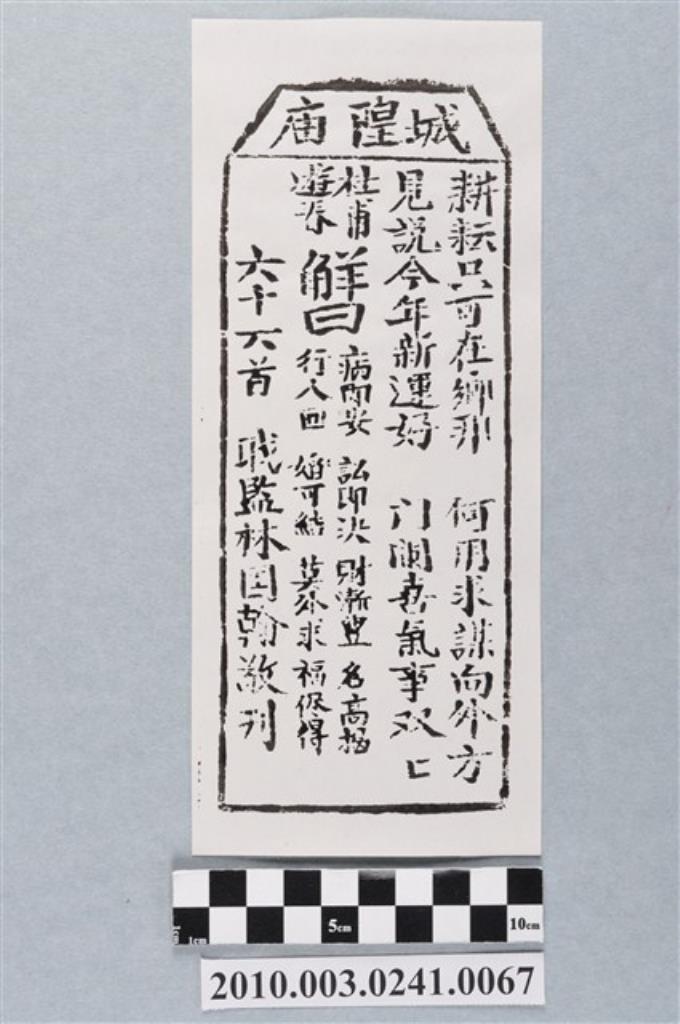 城隍庙
耕耘只可在鄉邦 何用求謀向外方
見說今年新運好 门闌喜氣事双匕
杜甫
遊春
觧曰
病即安 訟即決 財漸豊 名高揭
行人回 婚可結 莫外求 福得
六十六首 職監林国翰敬刊
1cm 5cm 10cm
2010.003.0241.0067